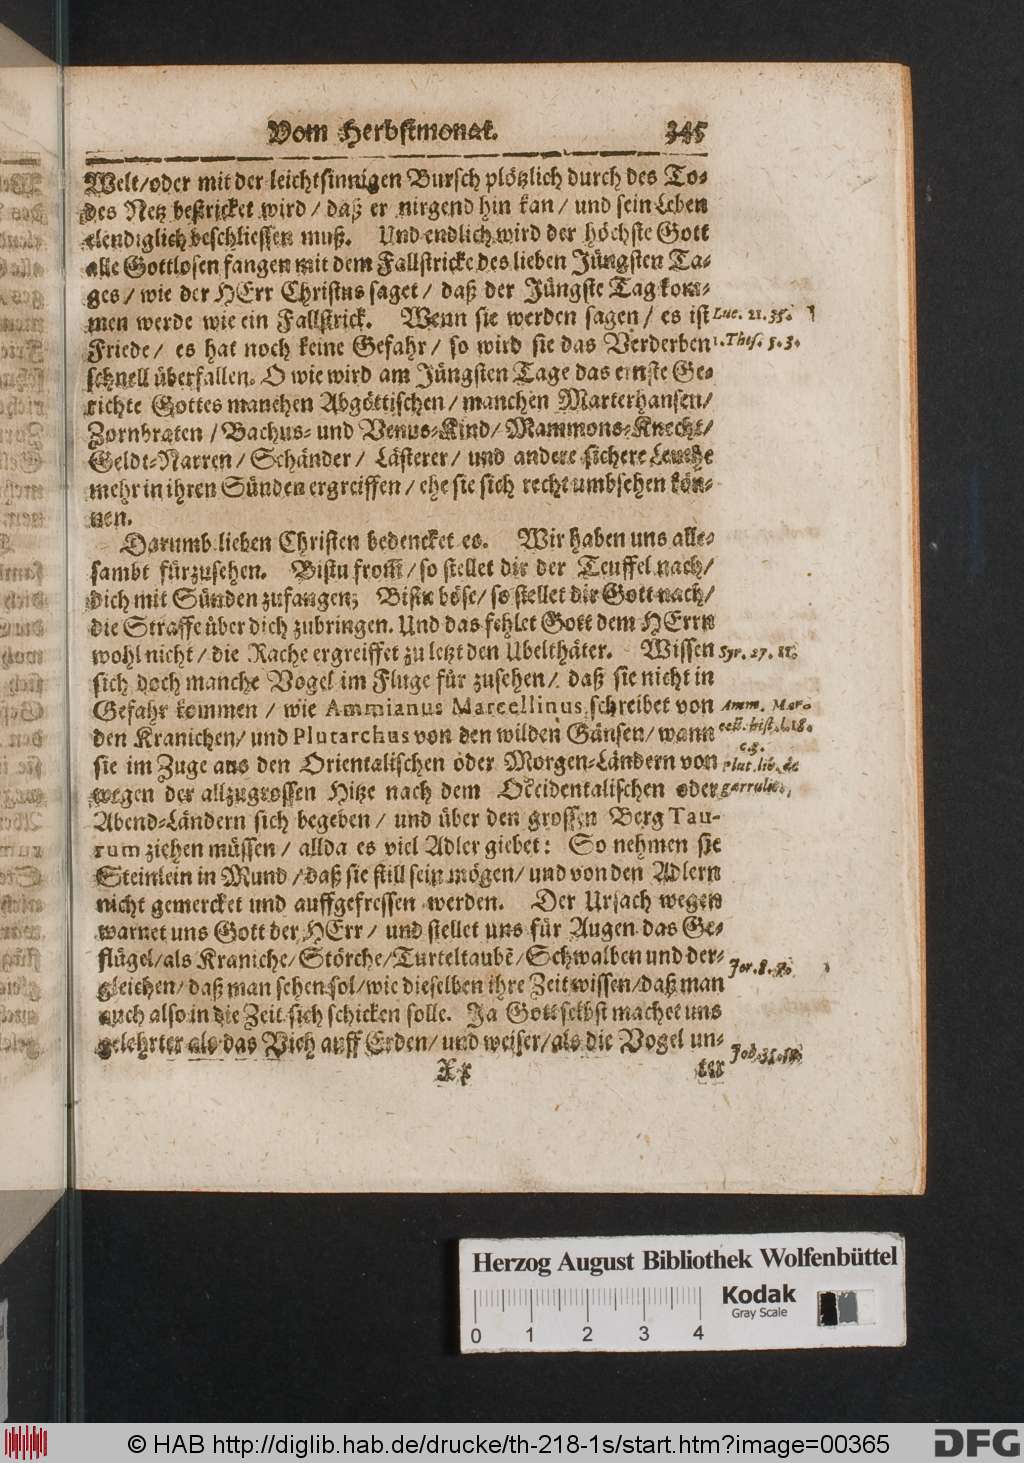 Vom Herbstmonat. 345
Welt/oder mit der leichtsinnigen Bursch plötzlich durch des To-
des Netz bestricket wird/ daß er nirgend hin kan/ und sein Leben
elendiglich beschliessen muß. Und endlich wird der höchste Gott
alle Gottlosen fangen mit dem Fallstricke des lieben Jüngsten Ta-
ges/ wie der HErr Christus saget/ daß der Jüngste Tag kom-
men werde wie ein Fallstrick. Wenn sie werden sagen/ es ist Luc. 21. 35.
Friede/ es hat noch keine Gefahr/ so wird sie das Verderben 1. Thes. 5. 3.
schnell überfallen. O wie wird am Jüngsten Tage das ernste Ge-
richte Gottes manchen Abgöttischen/ manchen Marterhansen/
Zornbraten/ Bachus- und Venus-Kind/ Mammons-Knecht/
Geldt-Narren/ Schänder/ Lästerer/ und andere sichere Leuthe
mehr in ihren Sünden ergreiffen/ ehe sie sich recht umbsehen kön-
nen.
Darumb lieben Christen bedencket es. Wir haben uns alle-
sambt fürzusehen. Bistu from̃/ so stellet dir der Teuffel nach/
dich mit Sünden zufangen; Bistu böse/ so stellet dir Gott nach/
die Straffe über dich zubringen. Und das fehlet Gott dem HErrn
wohl nicht/ die Rache ergreiffet zu letzt den Ubelthäter. Wissen Syr. 27. 11.
sich doch manche Vogel im Fluge für zusehen/ daß sie nicht in
Gefahr kommen/ wie Ammianus Marcellinus schreibet von Amm. Mar-
den Kranichen/ und Plutarchus von den wilden Gänsen/ wann cell. hist. l. 18.
c. 3.
sie im Zuge aus den Orientalischen oder Morgen-Ländern von Plut. lib. de
wegen der allzugrossen Hitze nach dem Occidentalischen oder garrulit.
Abend-Ländern sich begeben/ und über den grossen Berg Tau-
rum ziehen müssen/ allda es viel Adler giebet: So nehmen sie
Steinlein in Mund/ daß sie still sein mögen/ und von den Adlern
nicht gemercket und auffgefressen werden. Der Ursach wegen
warnet uns Gott der HErr/ und stellet uns für Augen das Ge-
flügel/als Kraniche/Störche/Turteltaubẽ/Schwalben und der- Jer. 8. 7.
gleichen/ daß man sehen sol/wie dieselben ihre Zeit wissen/daß man
auch also in die Zeit sich schicken solle. Ja Gott selbst machet uns
gelehrter als das Vieh auff Erden/ und weiser/als die Vogel un- Job. 35.
Xx ter
Herzog August Bibliothek Wolfenbüttel
Kodak
Gray Scale
0 1 2 3 4
© HAB http://diglib.hab.de/drucke/th-218-1s/start.htm?image=00365
DFG